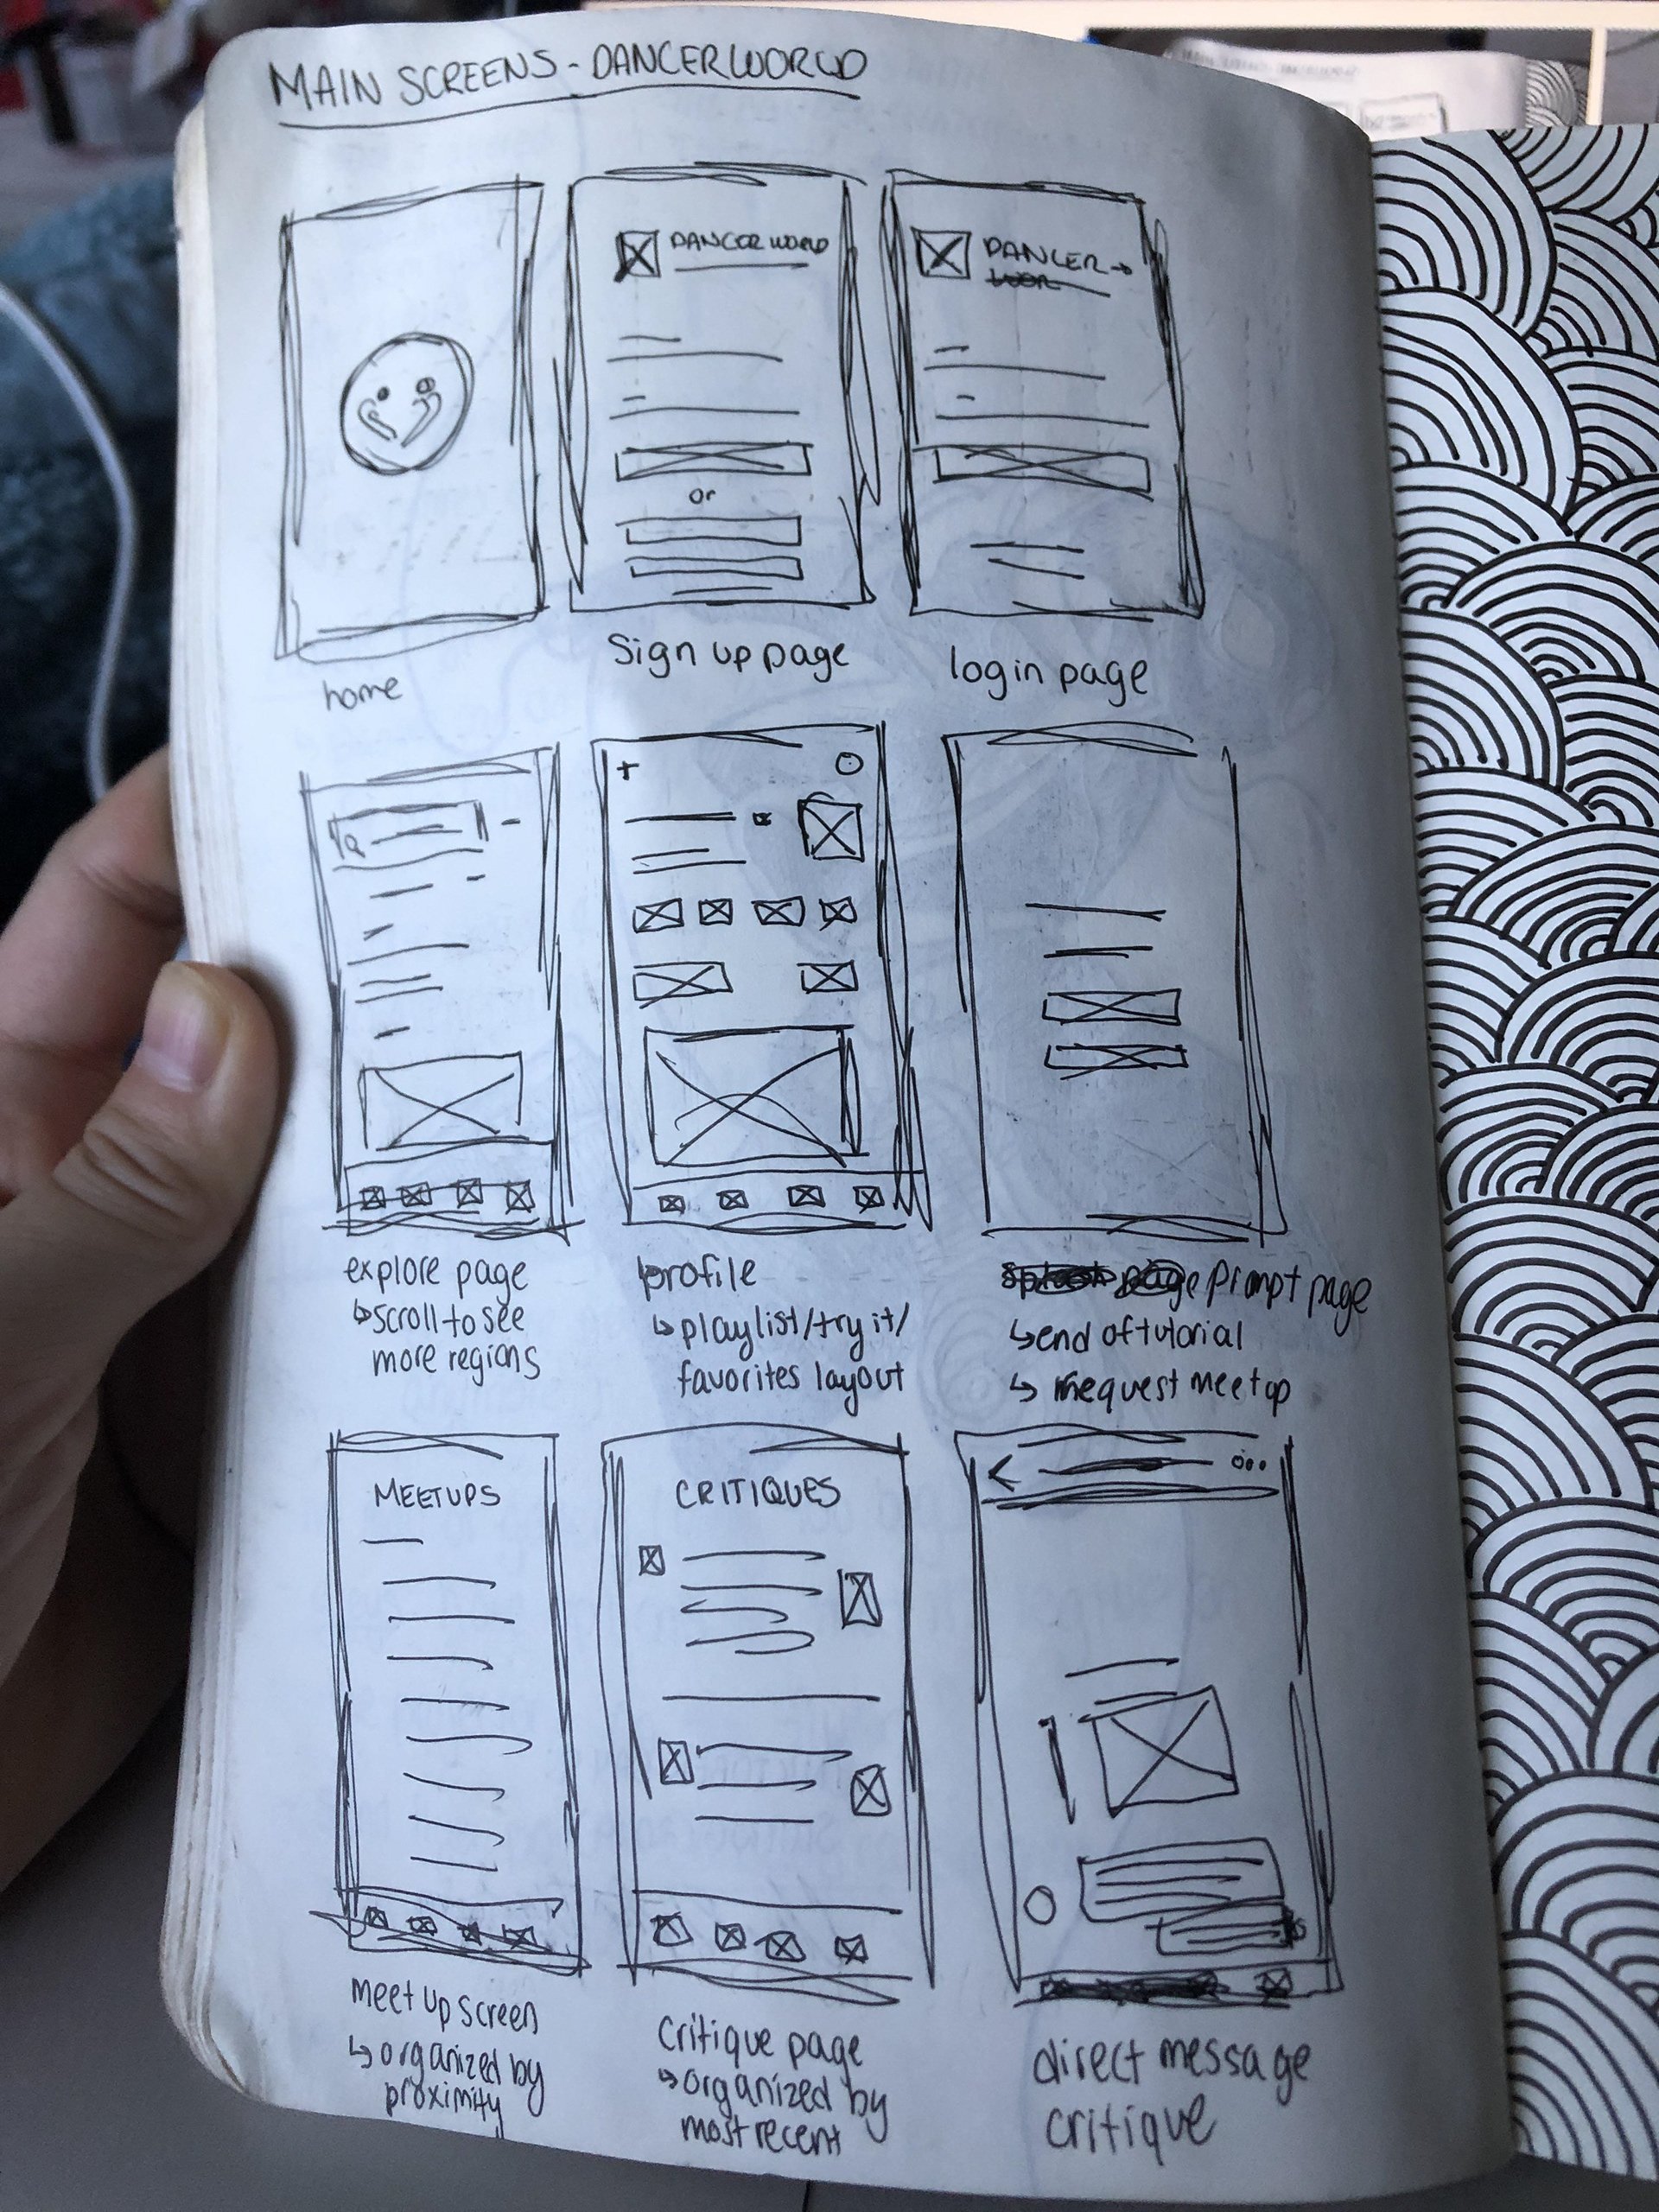 MAIN SCREENS - DANCERWORLD
DANCERWORLD
DANCER
or
home
Sign up page
login page
explore page
↳ scroll to see
more regions
profile
↳ playlist/try it/
favorites layout
page prompt page
↳ end of tutorial
↳ request meetup
MEETUPS
CRITIQUES
meet up screen
↳ organized by
proximity
critique page
↳ organized by
most recent
direct message
critique